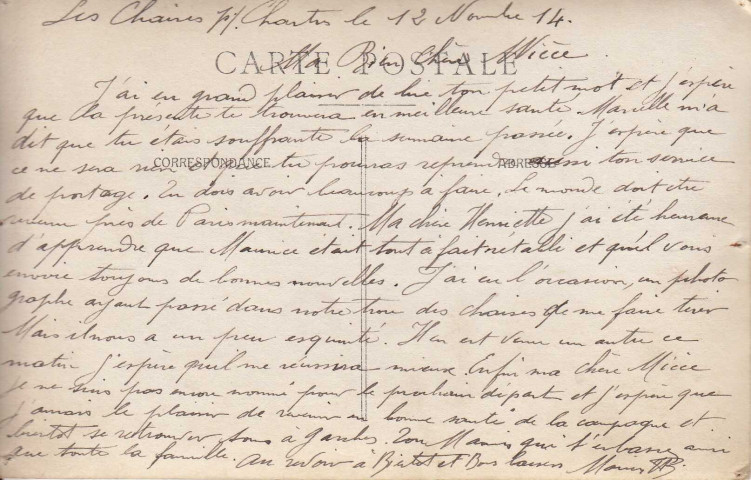 Les Chaises pf. Chartres le 12 Novbre 14.
CARTE POSTALE
Ma Bien chère Mièce
J'ai eu grand plaisir de lire ton petit mot et j'espère
que la présente te trouvera en meilleure santé Marcelle m'a
dit que tu étais souffrante la semaine passée. J'espère que
CORRESPONDANCE ADRESSE
ce ne sera rien et que tu pourras reprendre ton service
de portage. Tu dois avoir beaucoup à faire. Le monde doit être
revenu près de Paris maintenant. Ma chère Henriette j'ai été heureux
d'apprendre que Maurice était tout à fait rétabli et qu'il vous
envoie toujours de bonnes nouvelles. J'ai eu l'occasion, un photo
graphe ayant passé dans notre trou des chaises de me faire tirer
Mais il nous a un peu esquinté. Il en est venu un autre ce
matin j'espère qu'il me réussira mieux. Enfin ma chère Mièce
je ne suis pas encore nommé pour le prochain départ et j'espère que
j'aurais le plaisir de revenir en bonne santé de la campagne et
bientôt se retrouver tous à Garches. Ton Mamis qui t'embrasse ainsi
que toute la famille. Au revoir à Bientôt et Bons baisers